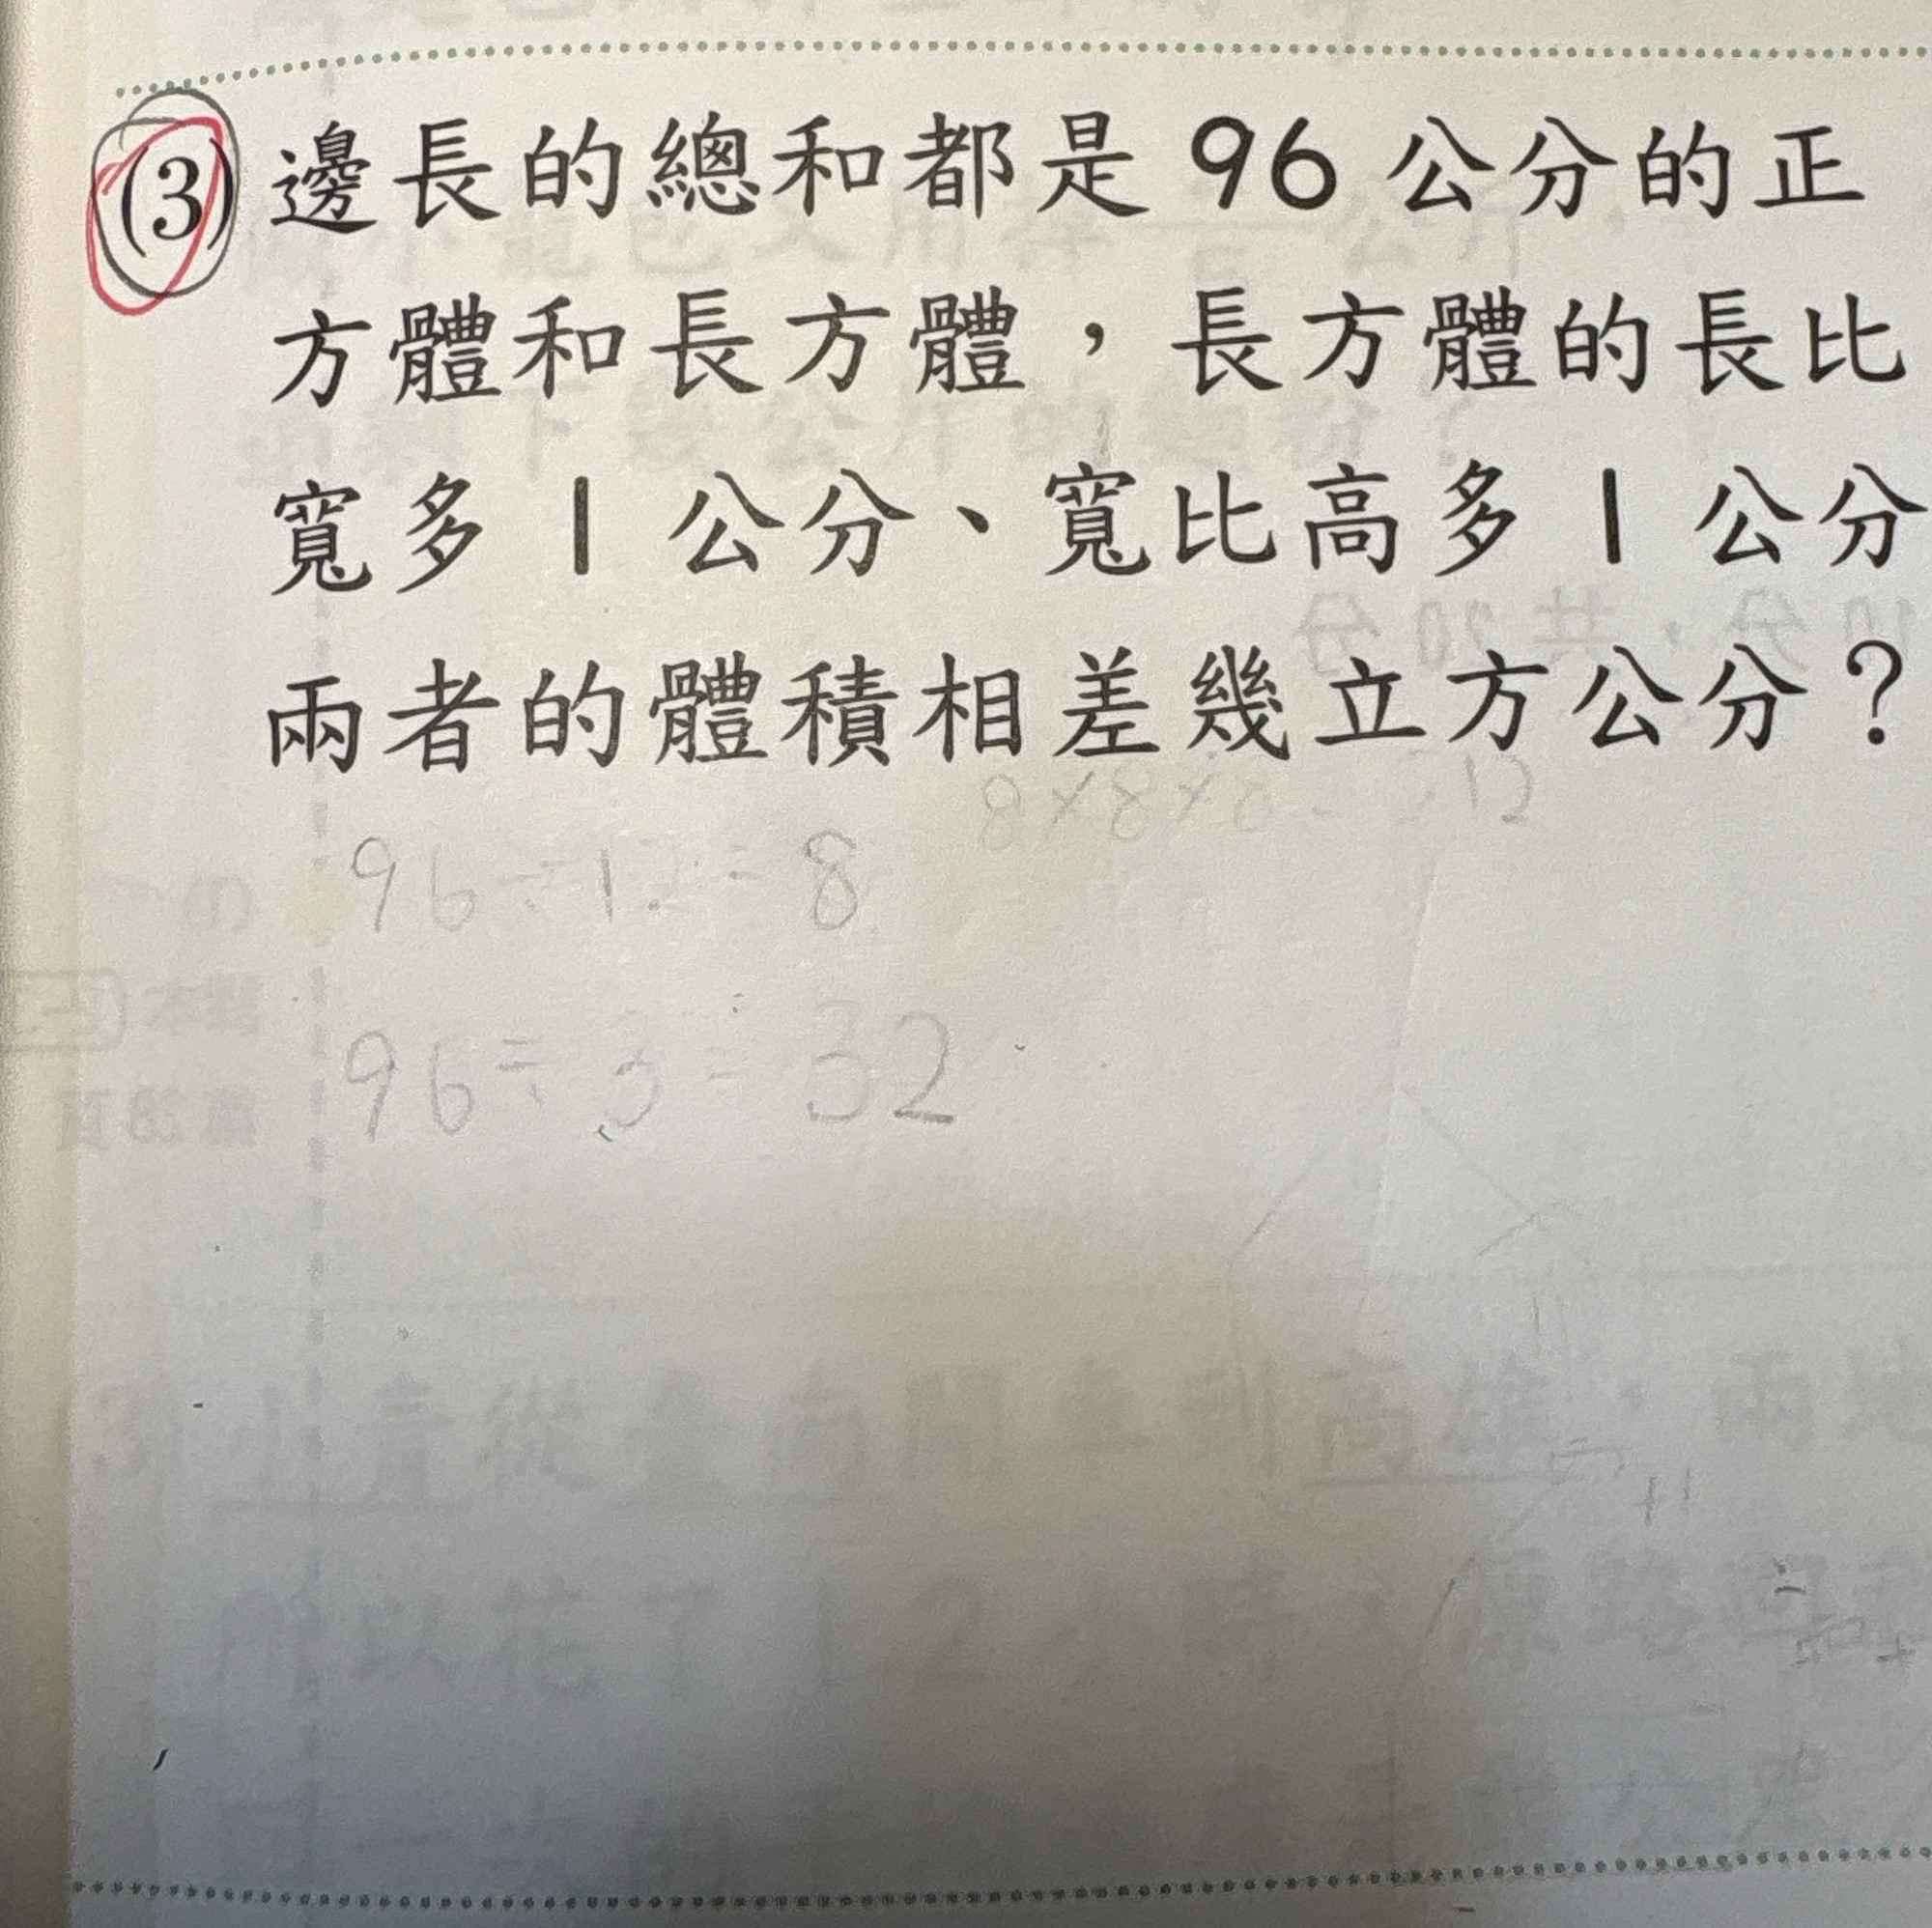 (3) 邊長的總和都是 96 公分的正
方體和長方體，長方體的長比
寬多 1 公分、寬比高多 1 公分
兩者的體積相差幾立方公分？
8×8×8
12
96÷12=8
96÷3=32